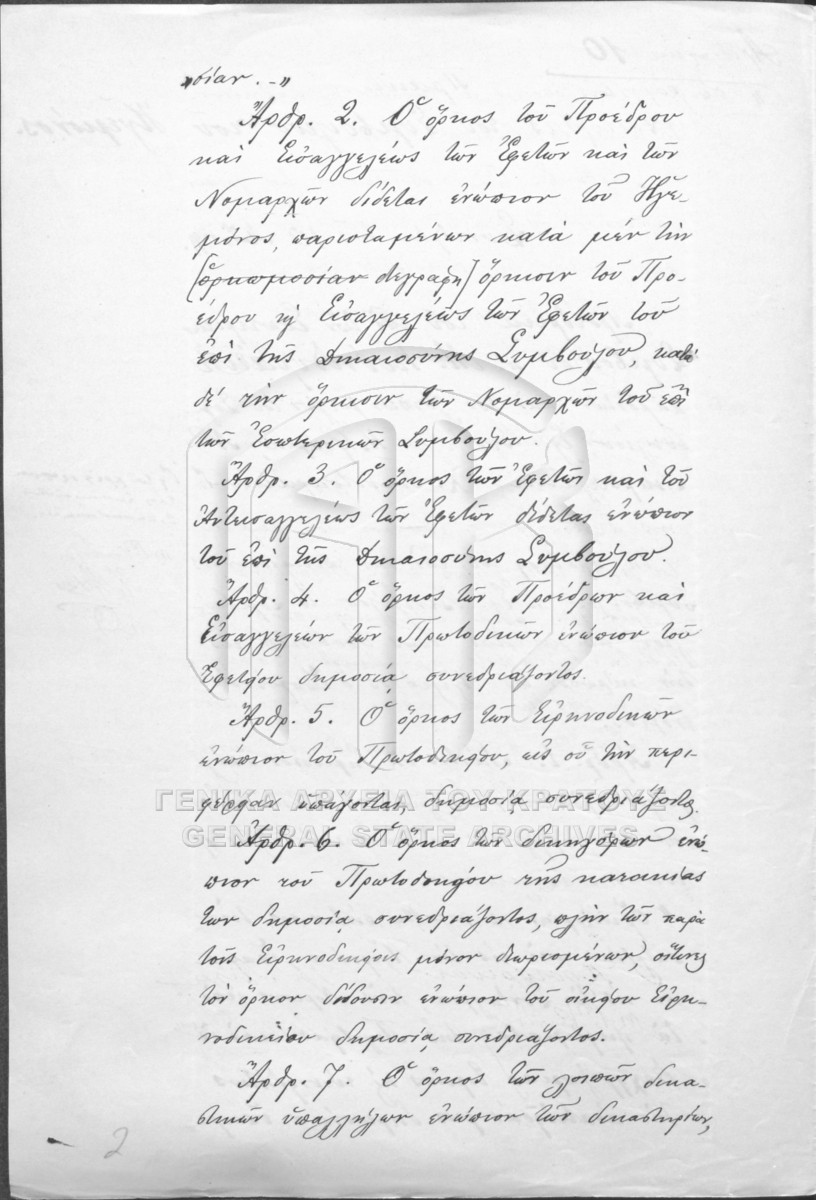 „σίαν.-"
Ἄρθρ. 2. Ὁ ὅρκος τοῦ Προέδρου
καὶ Εἰσαγγελέως τῶν Ἐφετῶν καὶ τῶν
Νομαρχῶν δίδεται ἐνώπιον τοῦ Ἡγε-
μόνος, παρισταμένων κατὰ μὲν τὴν
[ὁρκωμοσίαν διεγράφη] ὅρκισιν τοῦ Προ-
έδρου κ̀ Εἰσαγγελέως τῶν Ἐφετῶν τοῦ
ἐπὶ τῆς Δικαιοσύνης Συμβούλου, κατὰ
δὲ τὴν ὅρκισιν τῶν Νομαρχῶν τοῦ ἐπὶ
τῶν Ἐσωτερικῶν Συμβούλου.
Ἄρθρ. 3. Ὁ ὅρκος τῶν Ἐφετῶν καὶ τοῦ
Ἀντεισαγγελέως τῶν Ἐφετῶν δίδεται ἐνώπιον
τοῦ ἐπὶ τῆς Δικαιοσύνης Συμβούλου.
Ἄρθρ. 4. Ὁ ὅρκος τῶν Προέδρων καὶ
Εἰσαγγελέων τῶν Πρωτοδικῶν ἐνώπιον τοῦ
Ἐφετείου δημοσίᾳ συνεδριάζοντος.
Ἄρθρ. 5. Ὁ ὅρκος τῶν Εἰρηνοδικῶν
ἐνώπιον τοῦ Πρωτοδικείου, εἰς οὗ τὴν περι-
φέρειαν ὑπάγονται, δημοσίᾳ συνεδριάζοντος.
ΓΕΝΙΚΑ ΑΡΧΕΙΑ ΤΟΥ ΚΡΑΤΟΥΣ
GENERAL STATE ARCHIVES
Ἄρθρ. 6. Ὁ ὅρκος τῶν δικηγόρων ἐνώ-
πιον τοῦ Πρωτοδικείου τῆς κατοικίας
των δημοσίᾳ συνεδριάζοντος, πλὴν τῶν παρὰ
τοῖς Εἰρηνοδικείοις μόνον διωρισμένων, οἵτινες
τὸν ὅρκον δίδουσιν ἐνώπιον τοῦ οἰκείου Εἰρη-
νοδικείου δημοσίᾳ συνεδριάζοντος.
Ἄρθρ. 7. Ὁ ὅρκος τῶν λοιπῶν δικα-
στικῶν ὑπαλλήλων ἐνώπιον τῶν δικαστηρίων,
2